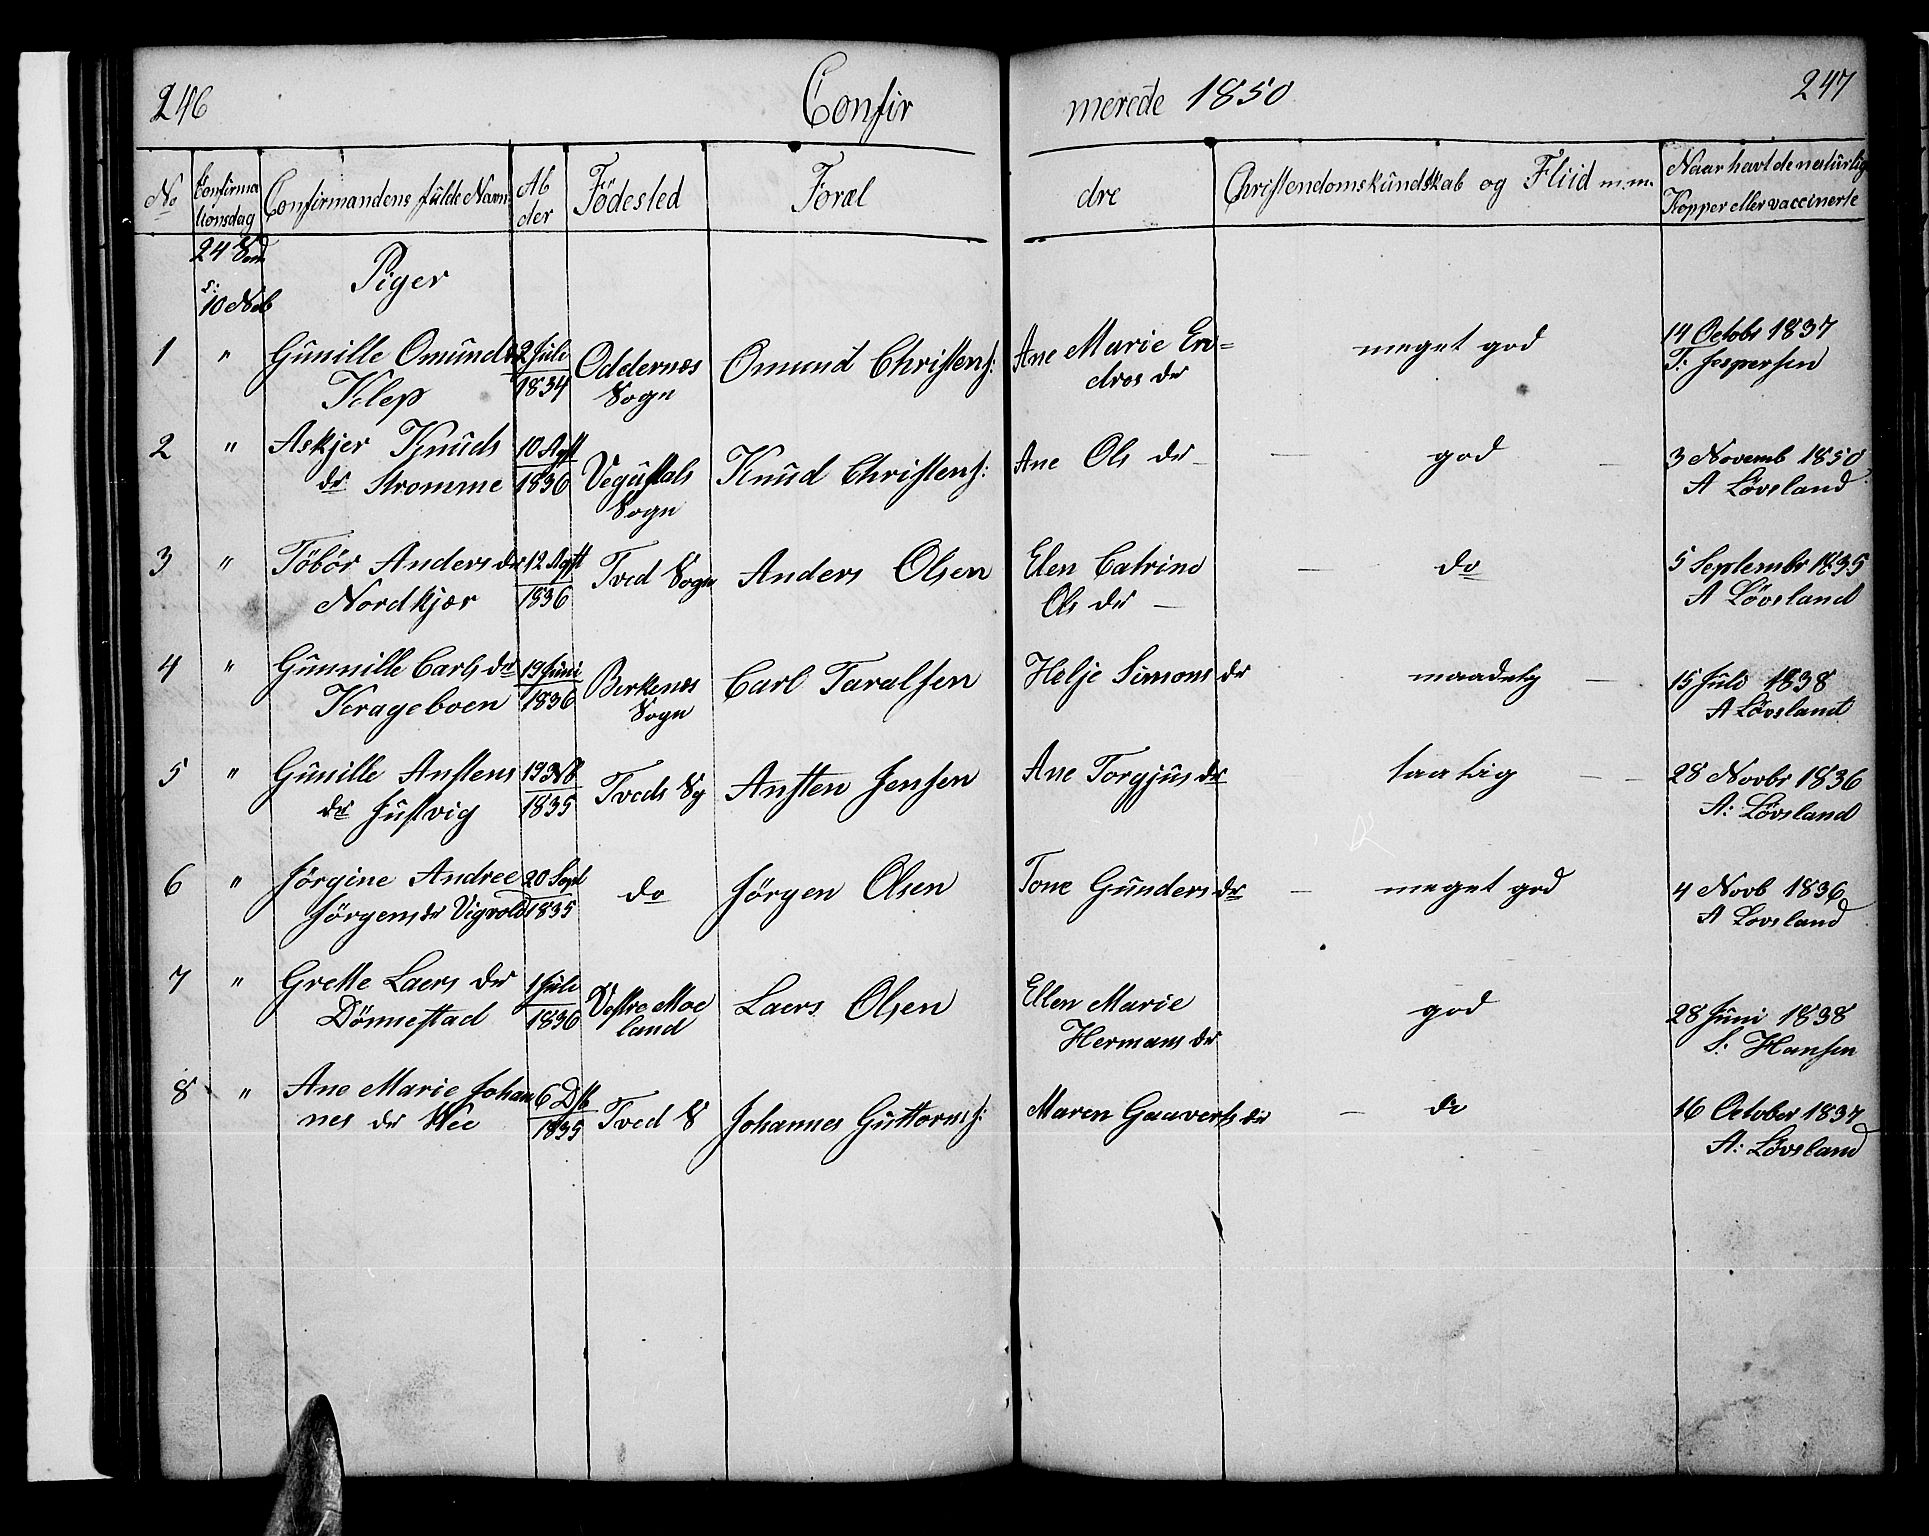 246
Confirmerede 1850
247
No
Confirmationsdag
Confirmandens fulde Navn
Alder
Fødested
Foræl
dre
Christendomskundskab og Fliid m.m.
Naar havt de naturlig
Kopper eller vaccinerte
24 
s:
10 Nob
Piger
1 " Gunille Omunds 2 Juli Oddernæs Omund Christens: Ane Marie En= meget god 14 Octobr 1837
Klep 1834 Sogn dres dr T: Jespersen
2 " Askjer Knuds 10 Agst Vegustals Knud Christens: Ane Ols dr — god — 3 Novemb 1850
dr Stromme 1836 Sogn A Løvsland
3 " Töbör Anders dr 12 Agst Tved Sogn Anders Olsen Elen Catrine — do 5 Septembr 1835
Nordkjær 1836 Ols dr — A Lövsland
4 " Gunnille Carls dr 19 Juni Birkenes Carl Taralsen Helje Simons dr maadelig — 15 Juli 1838
Krageboen 1836 Sogn A Lövsland
5 " Gunille Anstens 19 Nb Tveds Sg Ansten Jensen Ane Torgjus dr taalig — 28 Novbr 1836
dr Justvig 1835 A: Lövsland
6 " Jörgine Andree 20 Sept do Jörgen Olsen Tone Gunders dr — meget god 4 Novb 1836
Jörgens dr Vigvold 1835 A Lovsland
7 " Grette Laers dr 1 Juli Vestre Moe Laers Olsen Ellen Marie god 28 Juni 1838
Dönnestad 1836 land Hermans dr S: Hansen
8 " Ane Marie Johan 6 Dsb Tved S Johannes Guttorms: Maren Gauverts dr — do 16 October 1837
nes dr Wee 1835 A: Lövsland